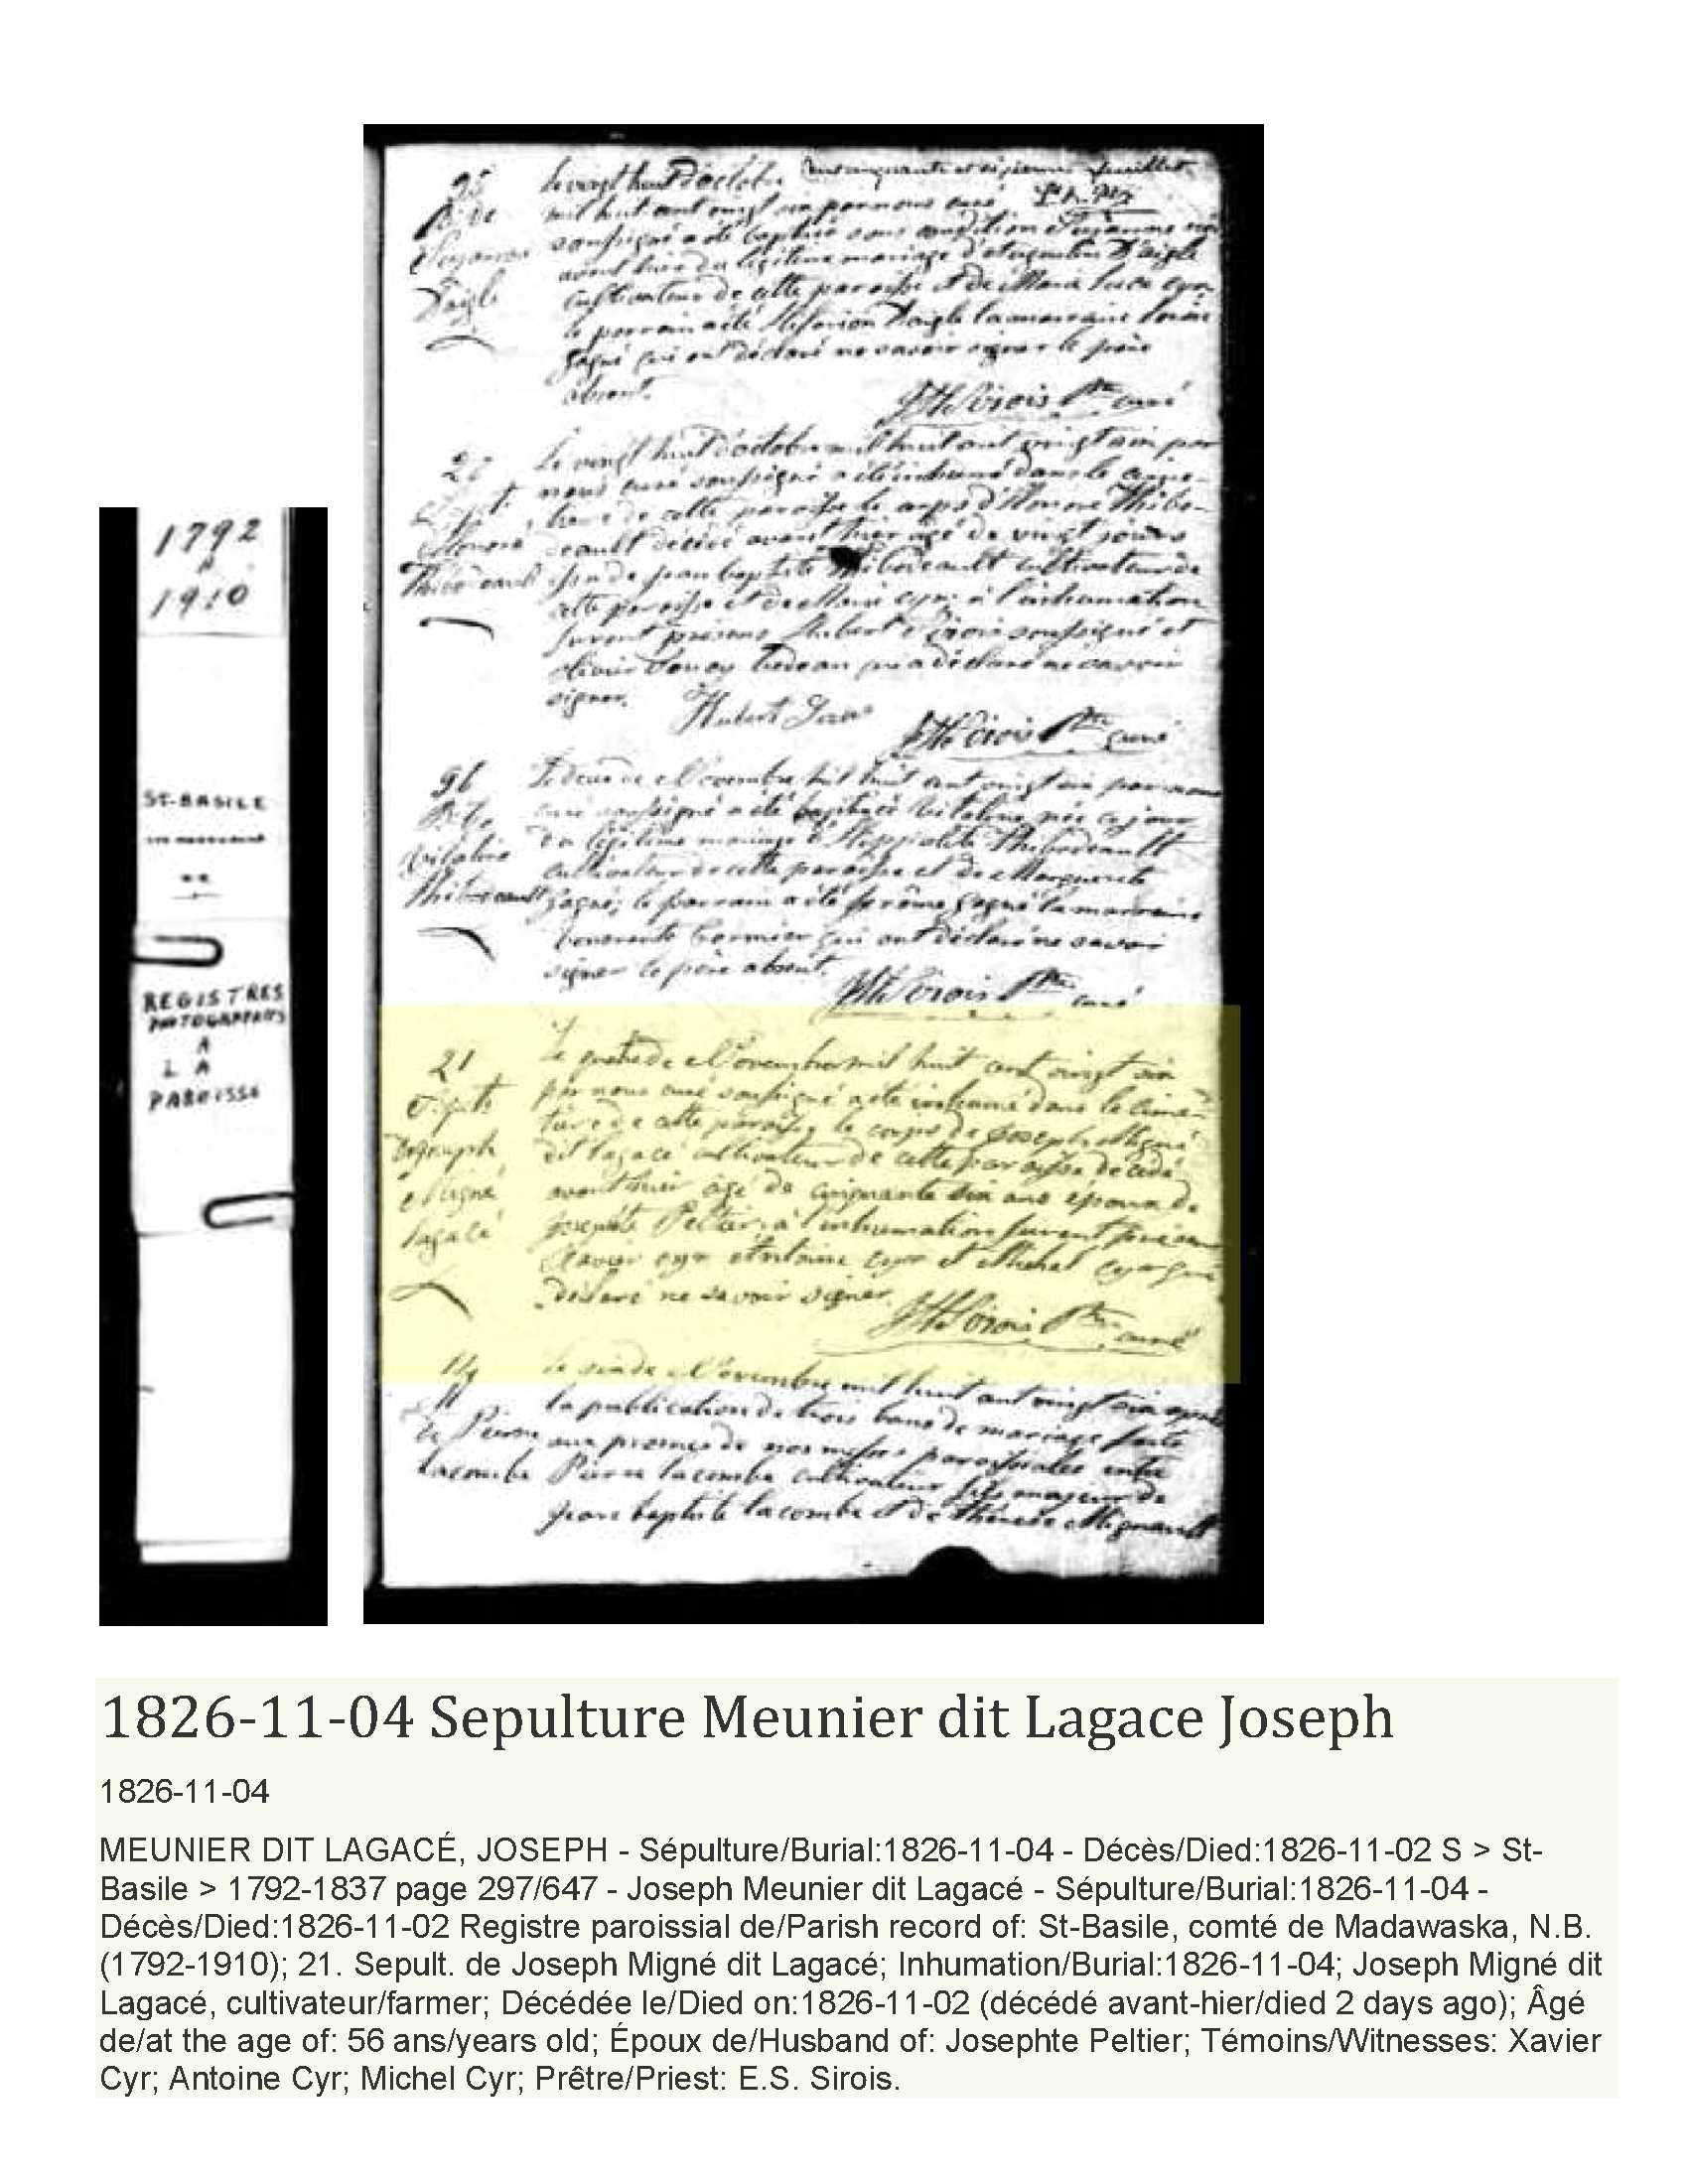 1792
A
1910
ST-BASILE
REGISTRES
PHOTOGRAPHIÉS
A
LA
PAROISSE
95
B. de
Suzanne
Daigle
Le vingt huit d'octobre
feuillet
mil huit cent vingt six par nous curé
soussigné a été baptisé sous condition Suzanne née
avant hier du légitime mariage d' Daigle
cultivateur de cette paroisse et de Marie Luce Cyr
le parrain a été Daigle la marraine
gagné qui ont déclaré ne savoir signer le père
absent.
Sirois Ptre curé
20
Sepult.
Honoré
Thibodeault
Le vingt huit d'octobre mil huit cent vingt six par
nous curé soussigné a été inhumé dans le cime-
tiere de cette paroisse le corps d'Honoré Thibo-
deault décédé avant hier agé de vingt jours
fils de jean baptiste Thibodeault cultivateur de
cette paroisse et de Marie Cyr: à l'inhumation
furent présens Hubert Sirois soussigné et
olivier bedeau qui a déclaré ne savoir
signer.
Hubert
Sirois Ptre curé
96
B. de
Vitaline
Thibodeault
Le deux de Novembre mil huit cent vingt six par nous
curé soussigné a été baptisée Vitaline née ce jour
du légitime mariage d'Hyppolite Thibodeault
cultivateur de cette paroisse et de Marguerite
gagné; le parrain a été jerôme gagné la marraine
Cormier qui ont déclaré ne savoir
signer le père absent.
Sirois Ptre curé
21
Sepult.
Joseph
Migné
lagacé
Le quatre de Novembre mil huit cent vingt six
par nous curé soussigné a été inhumé dans le cime-
tiere de cette paroisse le corps de Joseph Migné
dit lagacé cultivateur de cette paroisse décédé
avant hier âgé de cinquante six ans époux de
Josephte Peltier; à l'inhumation furent présens
Xavier Cyr Antoine Cyr et Michel Cyr qui
déclaré ne savoir signer.
Sirois Ptre curé
14
M
de Pierre
Lacombe
Le six de Novembre mil huit cent vingt six après
la publication de trois bans de mariage faite
aux prones de nos messes paroissiales entre
Pierre lacombe cultivateur fils majeur de
jean baptiste lacombe et de Thérèse Mignault
1826-11-04 Sepulture Meunier dit Lagace Joseph
1826-11-04
MEUNIER DIT LAGACÉ, JOSEPH - Sépulture/Burial:1826-11-04 - Décès/Died:1826-11-02 S > St-
Basile > 1792-1837 page 297/647 - Joseph Meunier dit Lagacé - Sépulture/Burial:1826-11-04 -
Décès/Died:1826-11-02 Registre paroissial de/Parish record of: St-Basile, comté de Madawaska, N.B.
(1792-1910); 21. Sepult. de Joseph Migné dit Lagacé; Inhumation/Burial:1826-11-04; Joseph Migné dit
Lagacé, cultivateur/farmer; Décédée le/Died on:1826-11-02 (décédé avant-hier/died 2 days ago); Âgé
de/at the age of: 56 ans/years old; Époux de/Husband of: Josephte Peltier; Témoins/Witnesses: Xavier
Cyr; Antoine Cyr; Michel Cyr; Prêtre/Priest: E.S. Sirois.